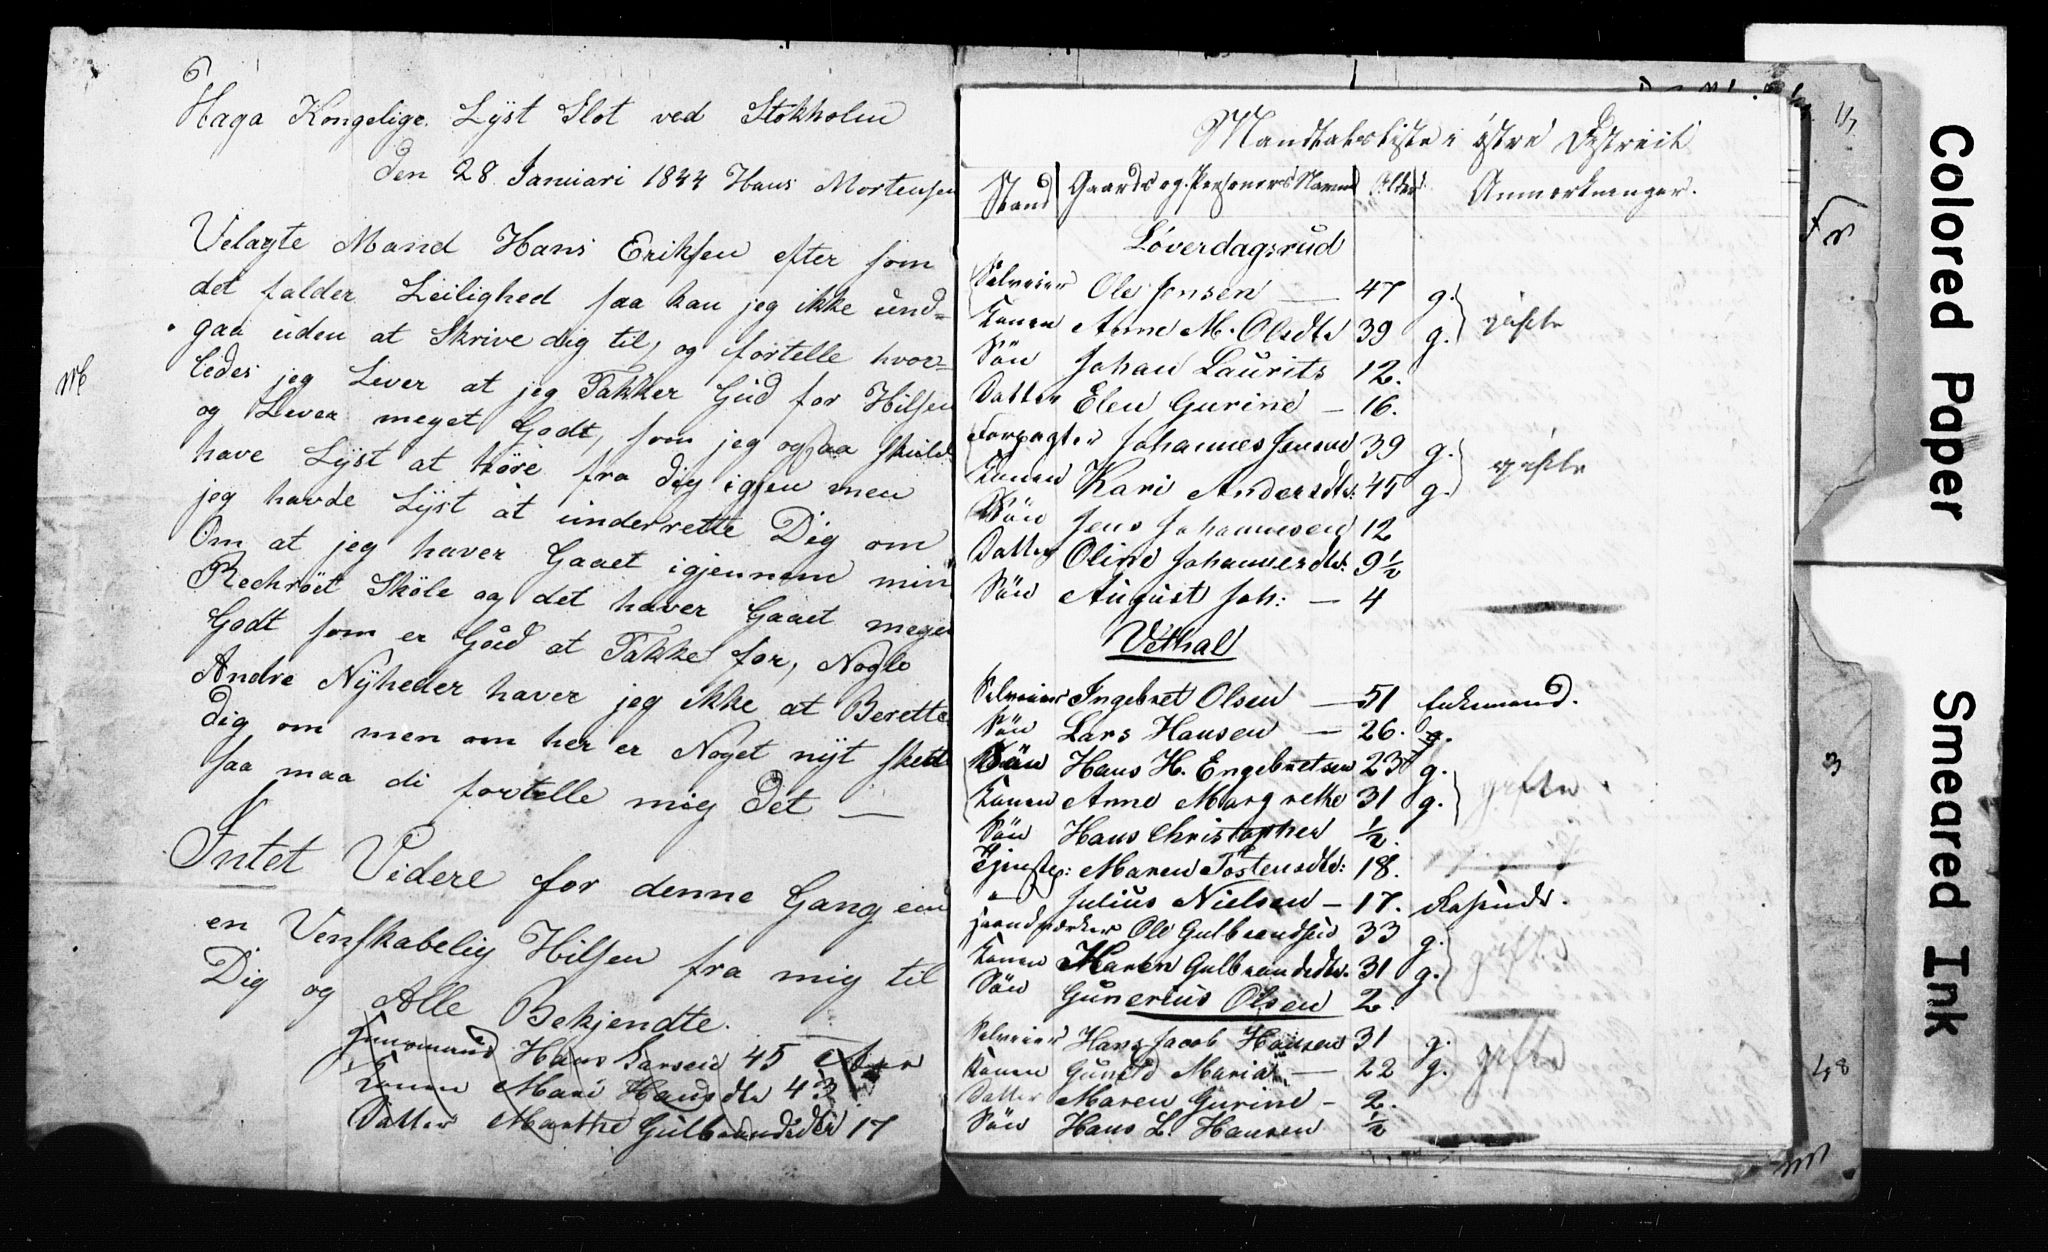 Haga Kongelige Lyst Slot ved Stokholm
den 28 Januari 1844 Hans Mortensen
Velagte Mand Hans Eriksen efter som
det falder Leilighed saa kan jeg ikke und-
gaa uden at Skrive dig til, og fortelle hvor-
ledes jeg Lever at jeg Takker Gud for Hilsen
og Lever meget Godt, som jeg ogsaa skulde
have Lyst at høre fra dig igjen men
jeg havde Lyst at underrette Dig om
Om at jeg haver Gaaet igjennem min
Rechrøet Skole og det haver Gaaet meget
Godt som er Gud at Takke for, Nogle
Andre Nyheder haver jeg ikke at Berette
Dig om men om her er Noget nyt skett
saa maa di fortelle mig Det —
Intet Videre for denne Gang end
en Venskabelig Hilsen fra mig til
Dig og Alle Bekjendte.
Hans Larsen 45
Konen Mari Hansdtr 43
Datter Marthe Gulbrandsdtr 17
Mandtalsliste i østre Distreit
Stand Gaards og Personers Navne Alder Anmerkninger.
Løverdagsrud
Selveier Ole Jensen — 47 g.
Konen Anne M. Olsdtr 39 g. gifte
Sön Johan Laurits 12.
Datter Elen Gurine — 16.
Forpagter Johannes Jensen 39 g.
Konen Kari Andersdtr: 45 g. gifte
Sön Jens Johannesen 12
Datter Oline Johannesdtr: 9½
Sön August Joh: — 4
Vethal
Selveier Ingebret Olsen — 51 Enkemand.
Sön Lars Hansen — 26. g.
Sön Hans H. Engebretsen 23 g.
Konen Anne Margrethe 31 g. gifte
Sön Hans Christopher ½.
Tjenste: Maren Tostensdtr: 18.
" Julius Nielsen — 17.
Ole Gulbrandsen 33 g.
Konen Maren Gulbrandsdtr. 31 g. gifte
Sön Gunerius Olsen 2.
Selveier Hans Jacob Hansen 31 g.
Konen Maria — 22 g. gifte
Datter Maren Gurine — 2.
Sön Hans L. Hansen ½
Colored Paper
Smeared Ink